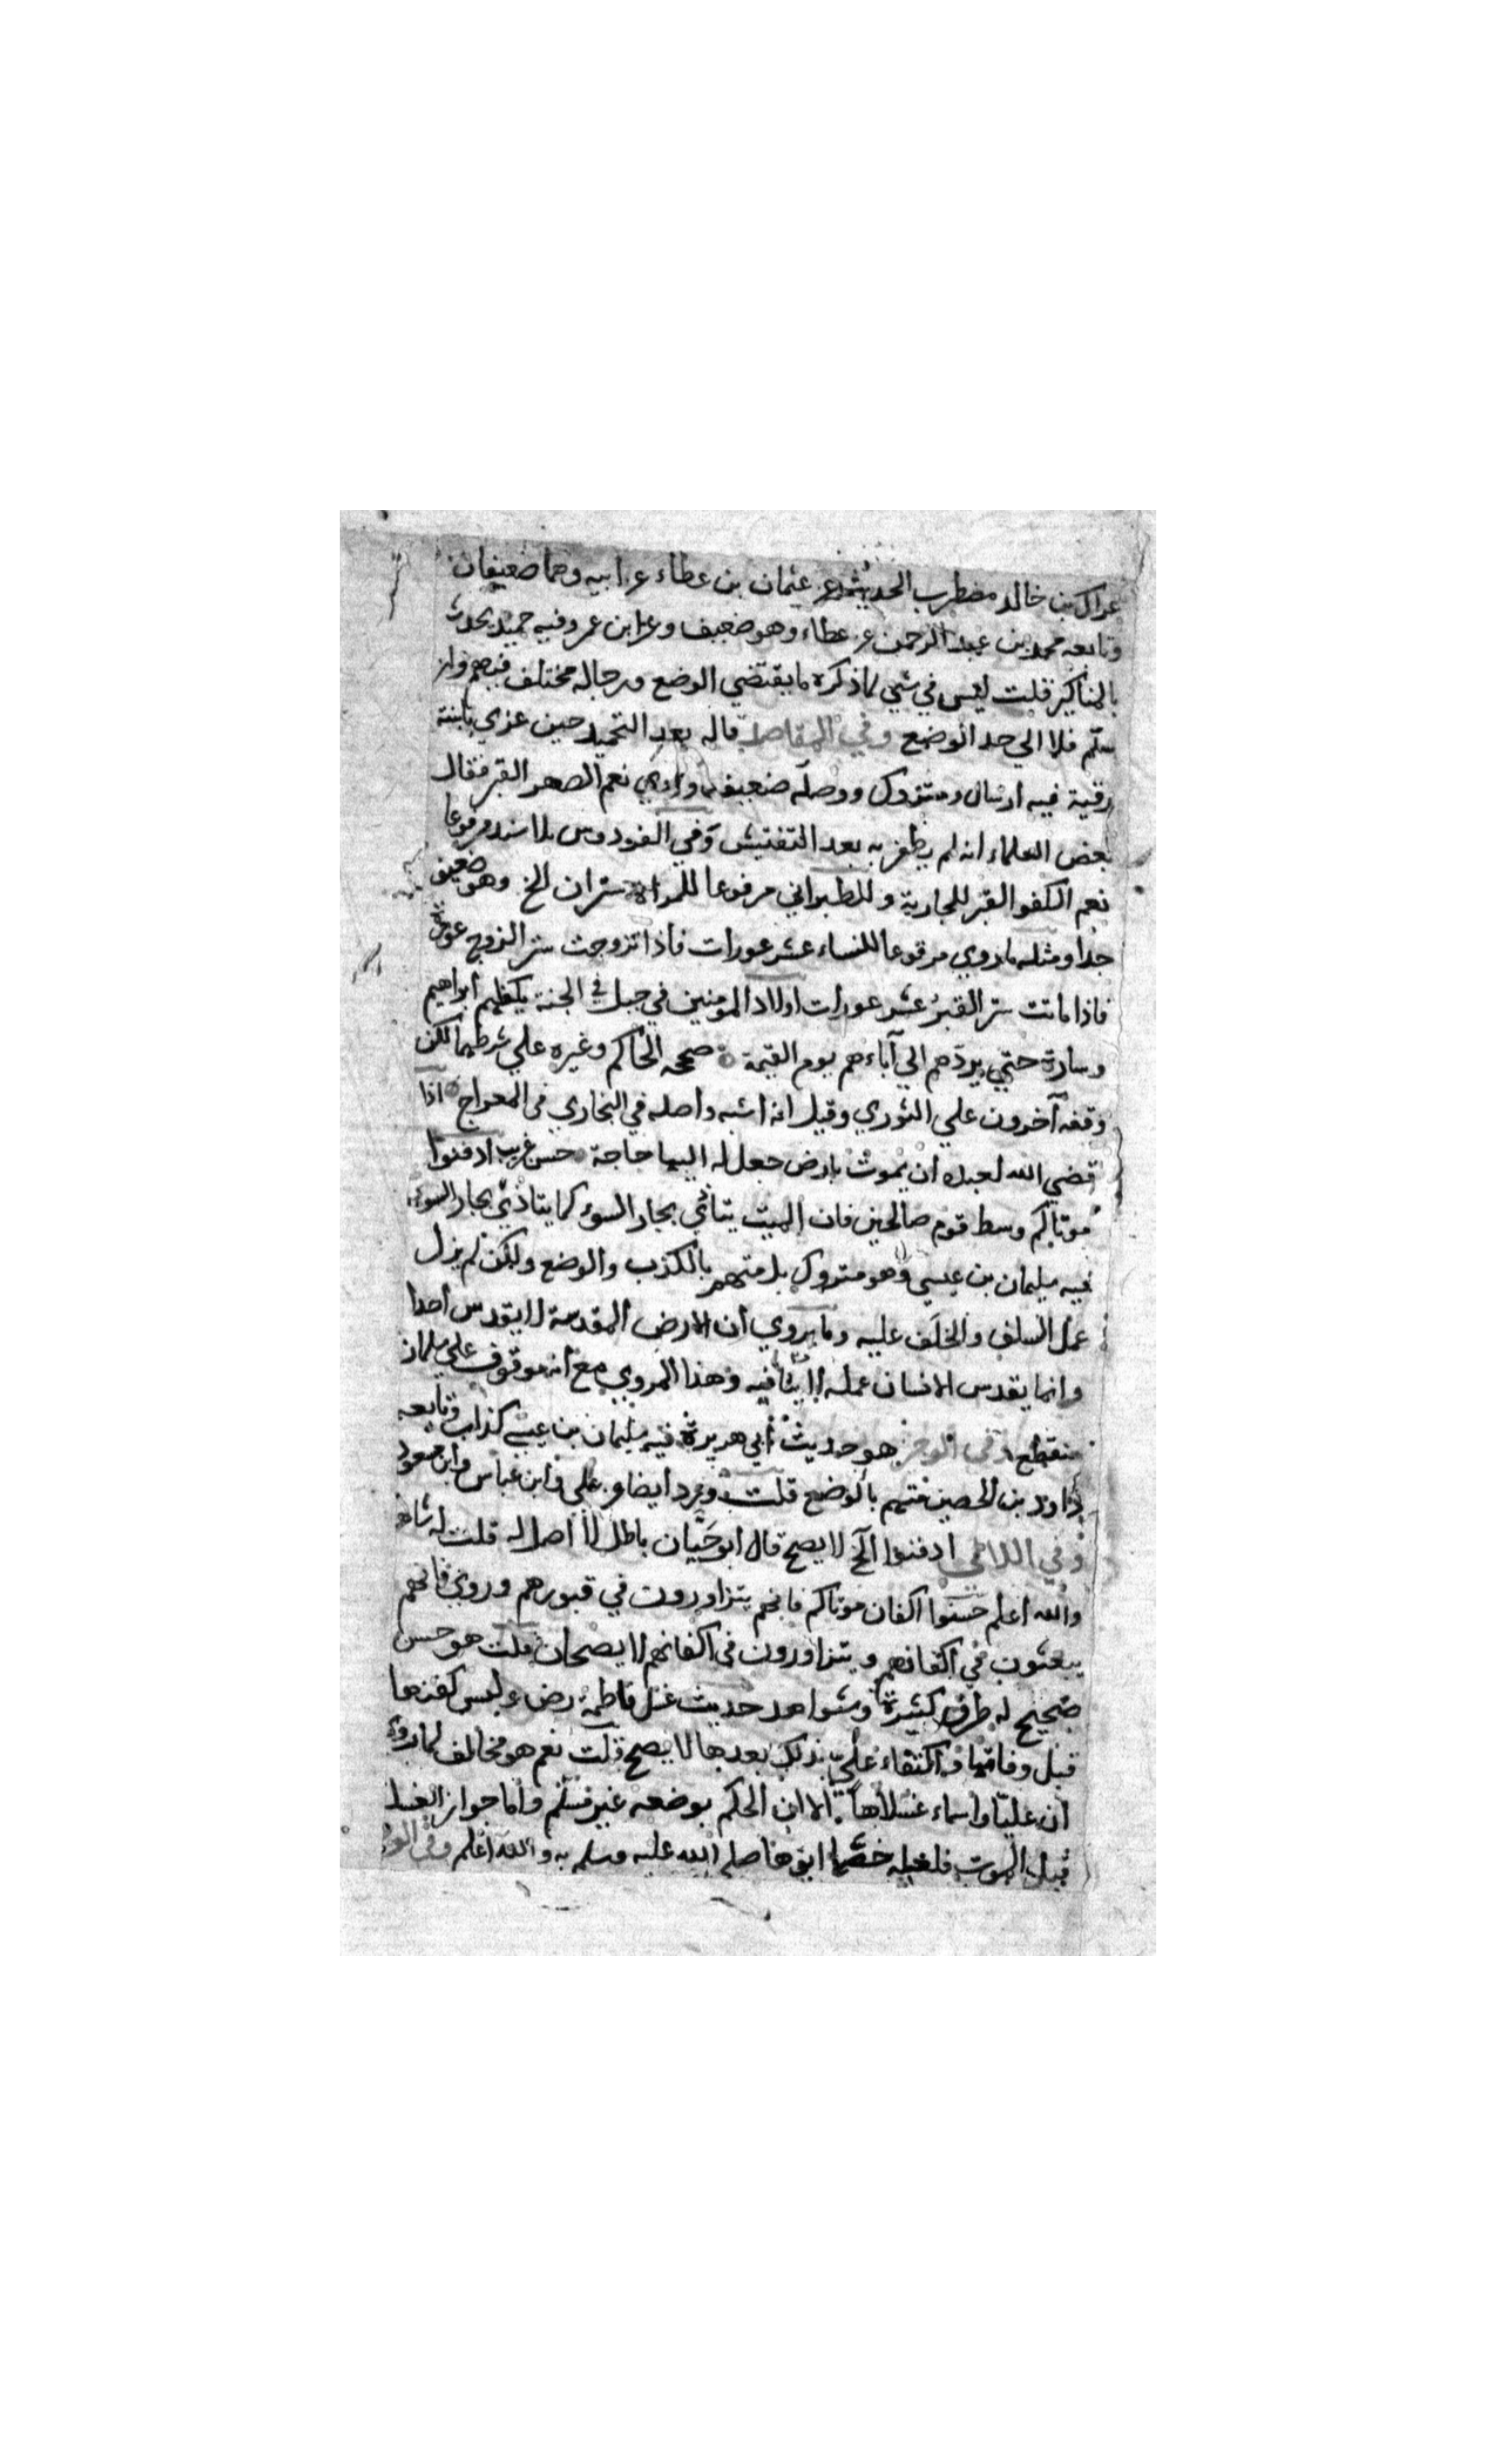 عراك بن خالد مضطرب الحديث عن عثمان بن عطاء عن ابيه وهما ضعيفان
وتابعه محمد بن عبد الرحمن عن عطاء وهو ضعيف وعن ابن عمر وفيه حميد يحدث
بالمناكير قلت ليس في شي مما ذكره ما يقتضي الوضع ورجاله مختلف فيهم وان
سلم فلا الي حد الوضع وفي المقاصد قاله بعد التحميد حين عزي بابنته
رقية فيه ارسال ومتروك ووصله ضعيف نعم الصهر القبر فقال
بعض العلماء انه لم يظفر به بعد التفتيش وفي الفردوس بلا سند مرفوعا
نعم الكفو القبر للجارية وللطبراني مرفوعا للمراة ستران الخ وهو ضعيف
جدا ومثله ما روي مرفوعا للنساء عشر عورات فاذا تزوجت ستر الزوج عورة
فاذا ماتت ستر القبر عشر عورات اولاد المومنين في جبل في الجنة يكفلهم ابراهيم
وسارة حتي يردهم الي آباءهم يوم القيمة صححه الحاكم وغيره علي شرطهما لكن
وقفه آخرون علي الثوري وقيل انه اشبه واصله في البخاري في المعراج اذا
قضي الله لعبد ان يموت بارض جعل له اليها حاجة حسن غريب ادفنوا
موتاكم وسط قوم صالحين فان الميت يتاذي بجار السوء كما يتاذي بجار السوء
فيه سليمان بن عيسي وهو متروك بل متهم بالكذب والوضع ولكن لم يزل
عمل السلف والخلف عليه وما يروي ان الارض المقدسة لا يقدس احدا
وانما يقدس الانسان عمله لا ينافيه وهذا المروي مع انه موقوف علي سلمان
منقطع وفي الوجيز هو حديث أبي هريرة فيه سليمان بن عيسي كذاب وتابعه
داود بن الحصين متهم بالوضع قلت ورد ايضا عن علي وابن عباس وابن مسعود
وفي اللآلي ادفنوا الخ لا يصح قال ابو حيان باطل لا اصل له قلت له شاهد
والله اعلم حسنوا اكفان موتاكم فانهم يتزاورون في قبورهم وروي فانهم
يبعثون في اكفانهم ويتزاورون في اكفانهم لا يصحان قلت هو حسن
صحيح له طرق كثيرة وشواهد حديث غسل فاطمة رض ولبس كفنها
قبل وفاتها واكتفاء علي بذلك بعدها لا يصح قلت نعم هو مخالف لما روي
ان عليا واسماء غسلاها الا ان الحكم بوضعه غير مسلم واما جواز الغسل
قبل الموت فلعله خصها ابوها صلي الله عليه وسلم به والله اعلم